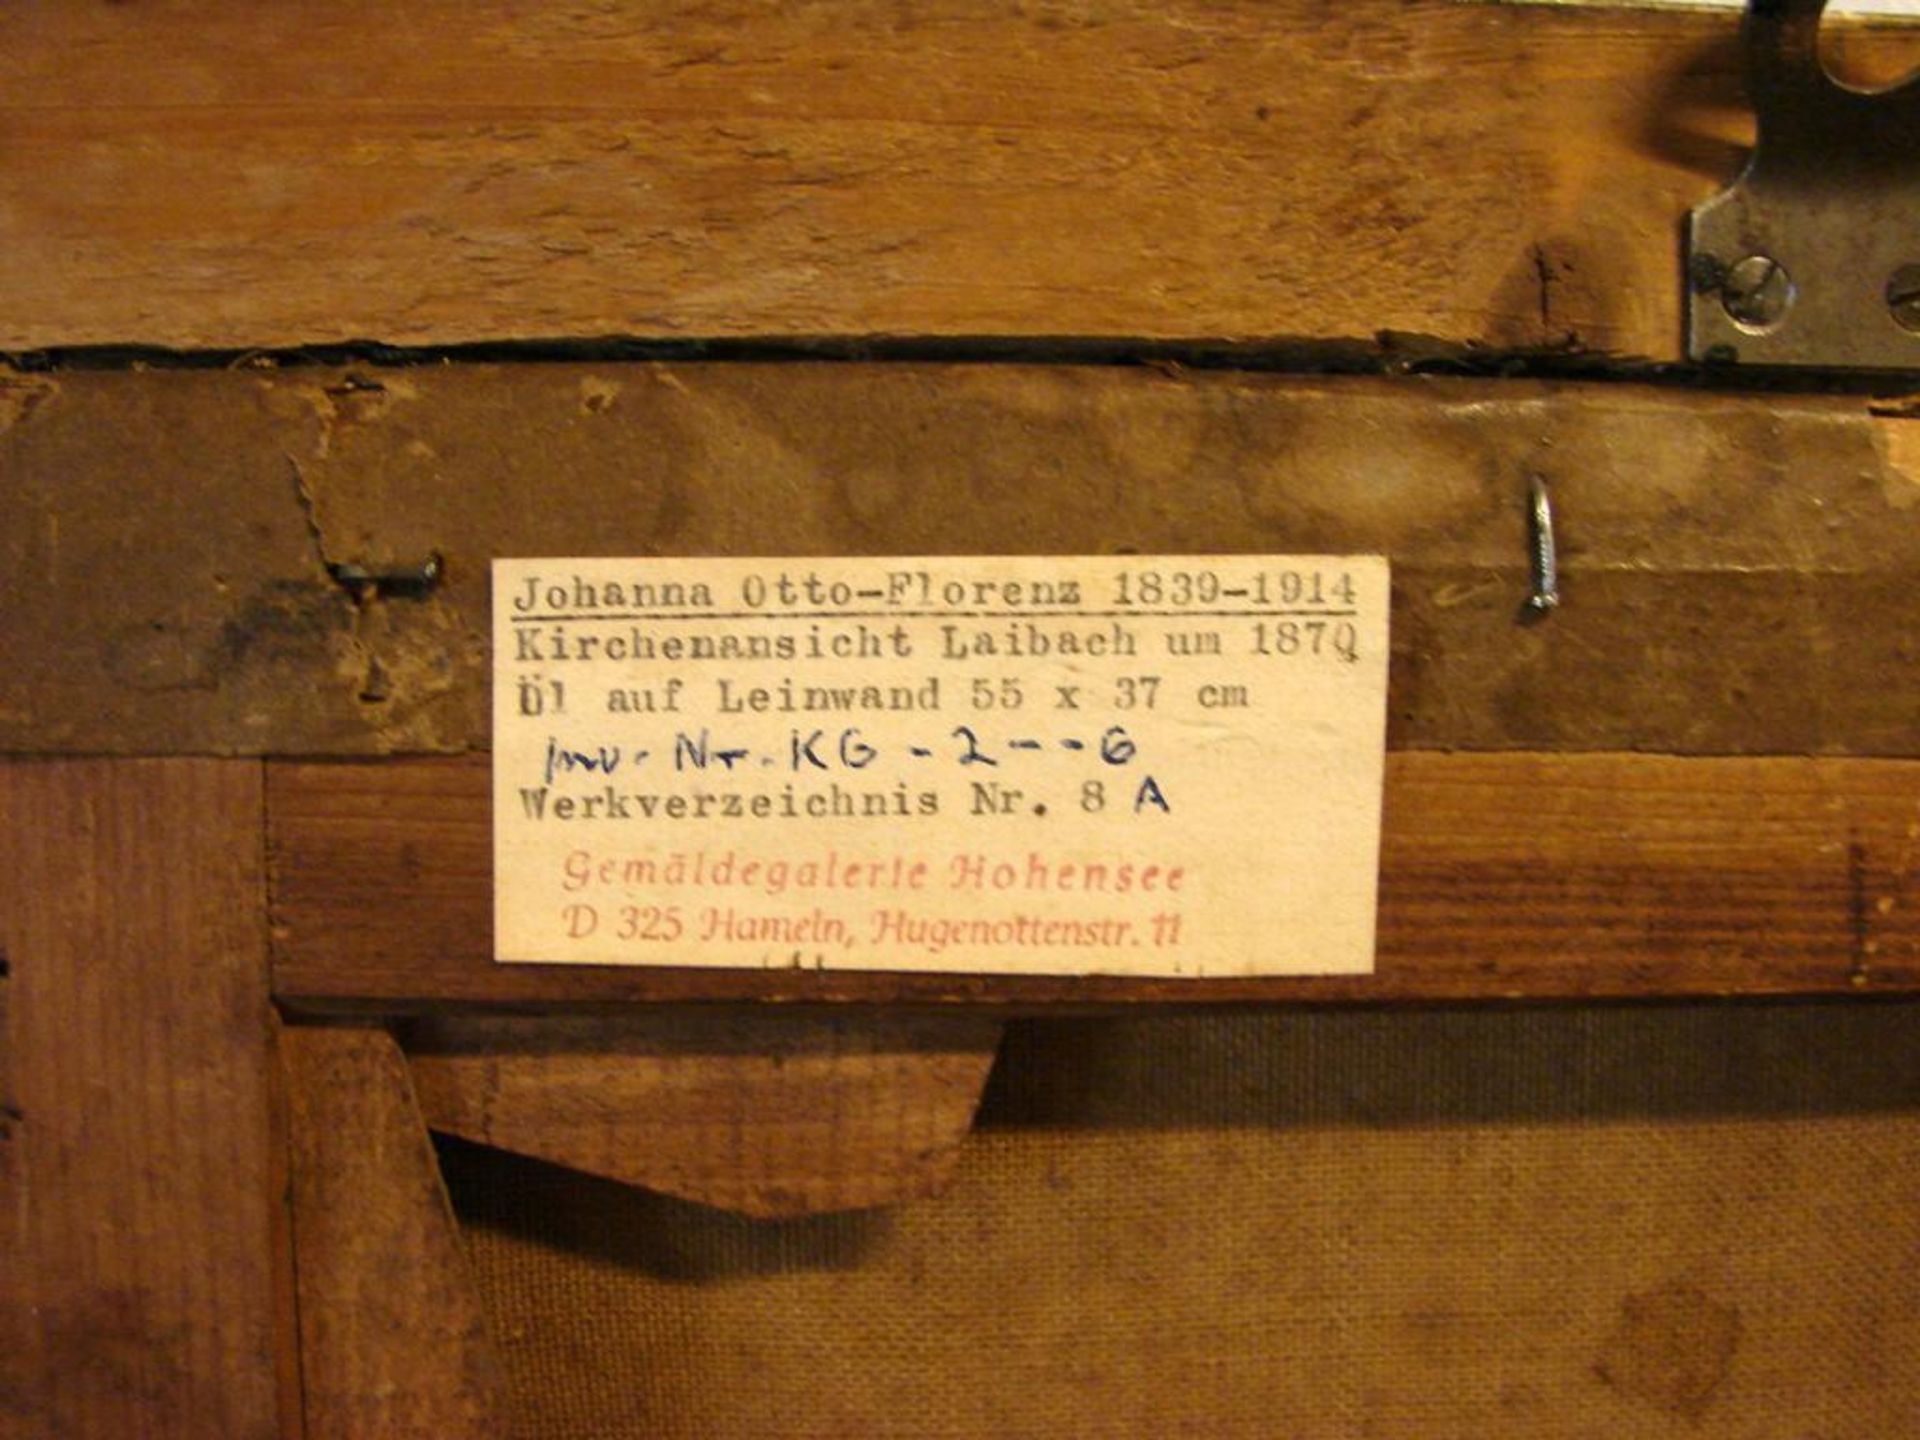 Johanna Otto-Florenz 1839-1914
Kirchenansicht Laibach um 1870
Öl auf Leinwand 55 x 37 cm
Inv. Nr. KG - 2 - - 6
Werkverzeichnis Nr. 8 A
Gemäldegalerie Hohensee
D 325 Hameln, Hugenottenstr. 11